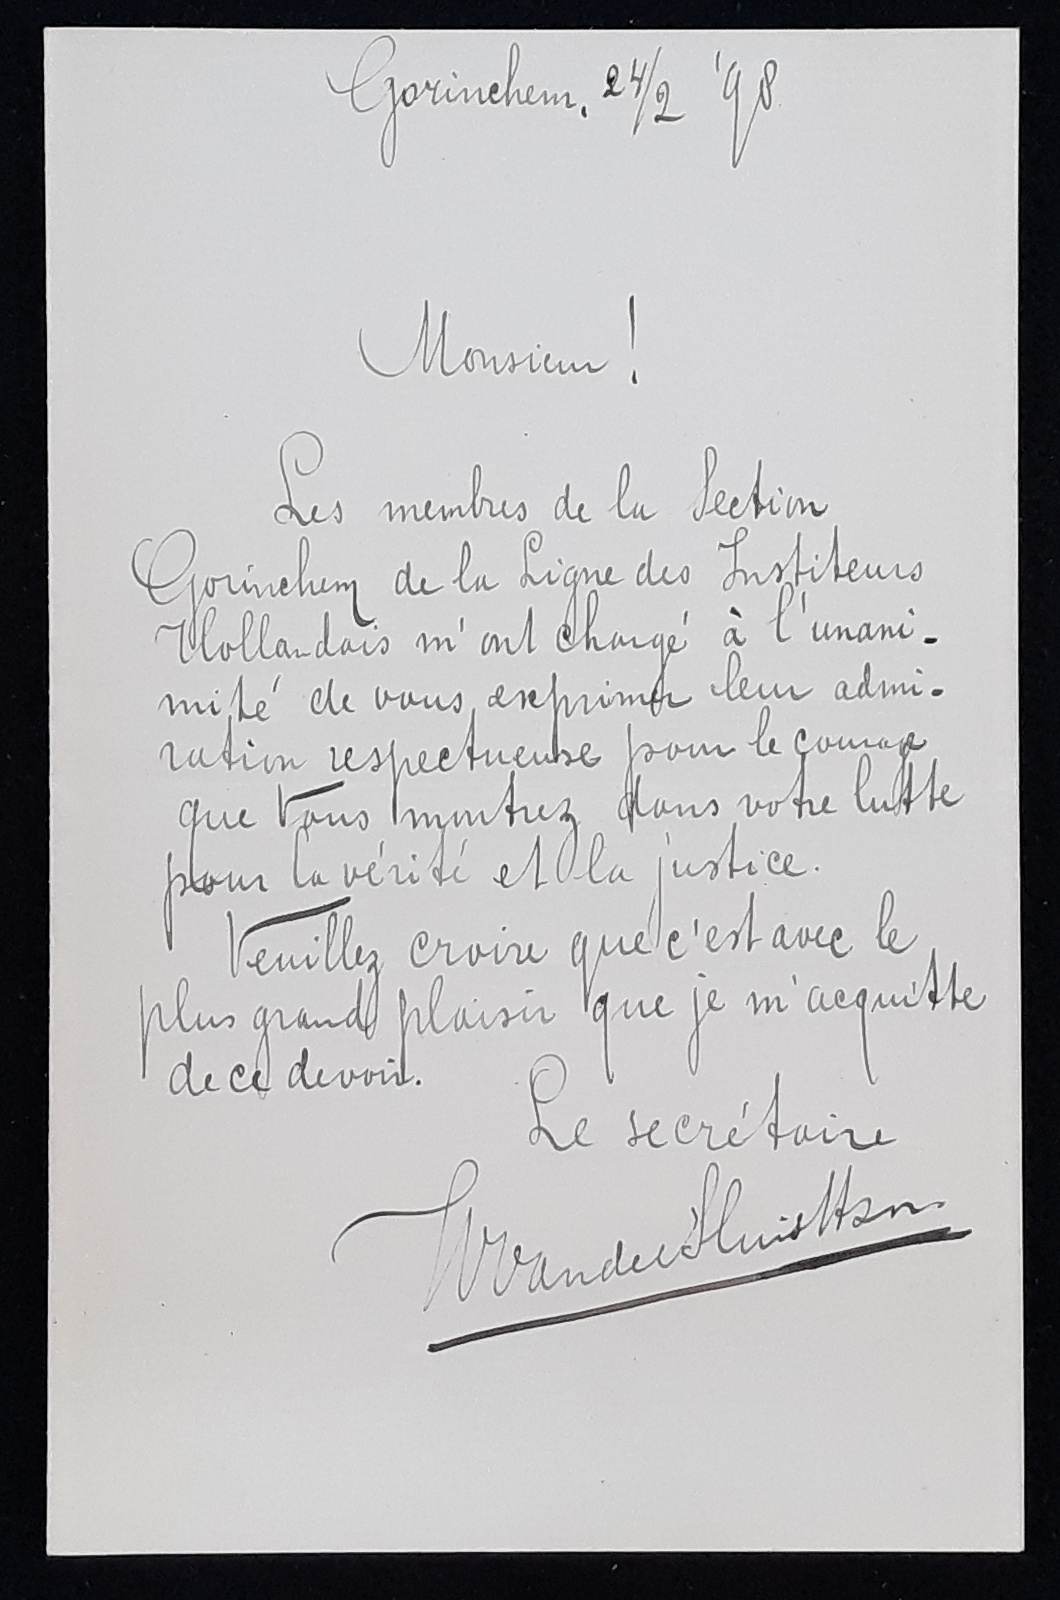 Gorinchem, 24/2 '98
Monsieur!
Les membres de la Section
Gorinchem de la Ligne des Institeurs
Hollandais m'ont chargé à l'unani-
mité de vous exprimer leur admi-
ration respectueuse pour le courage
que Vous montrez dans votre lutte
pour la vérité et la justice.
Veuillez croire que c'est avec le
plus grand plaisir que je m'acquitte
de ce devoir.
Le secrétaire
W van der Sluis Hzn